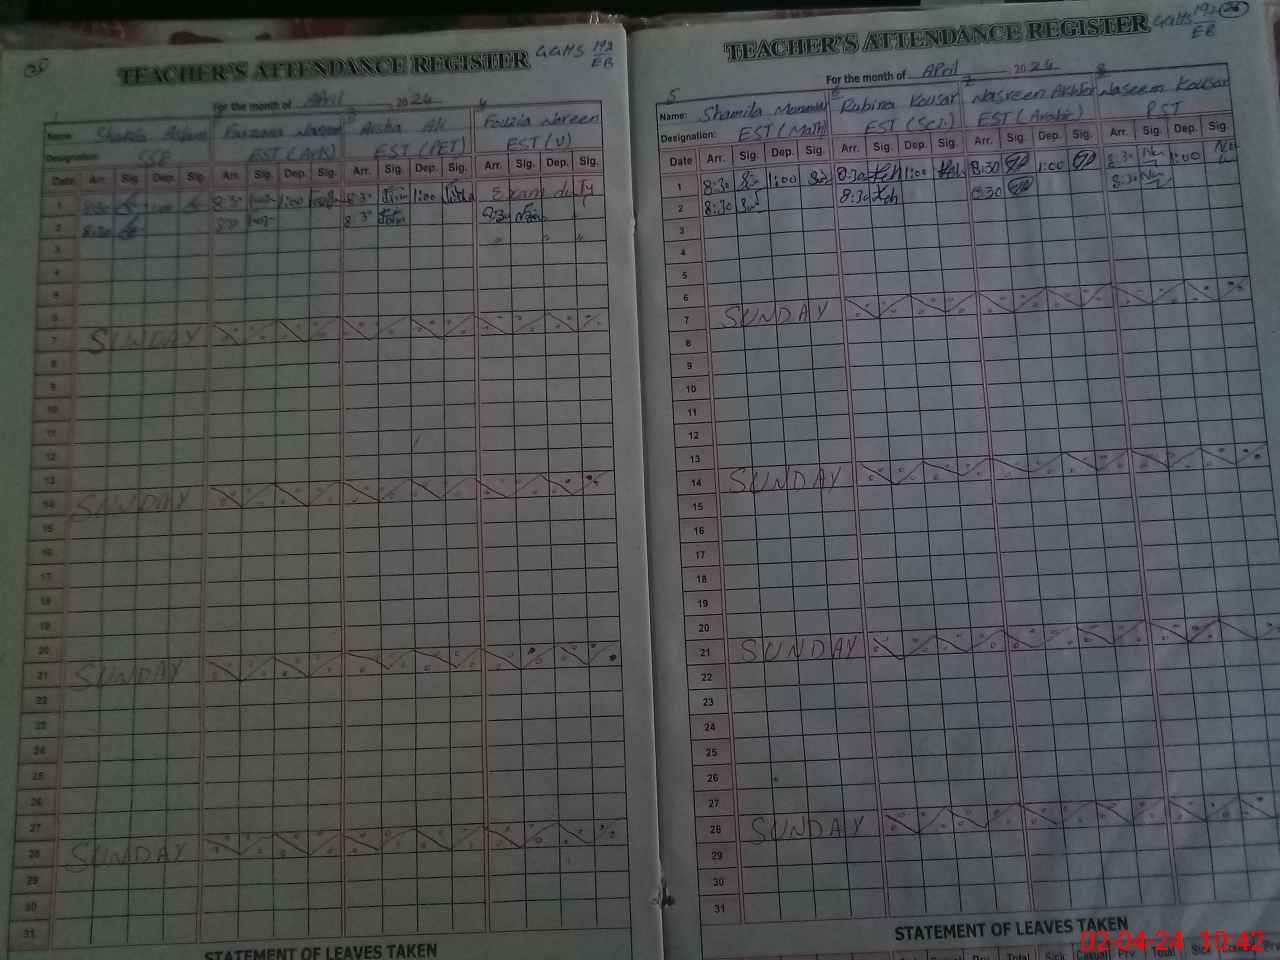 25
TEACHER'S ATTENDANCE REGISTER GGHS 192/EB
For the month of April 2024
1 3 4
Name: Shazia Aslam Farzana Aisha Ali Fouzia
Designation: SSE EST (Arts) EST (PET) EST (U)
Date Arr. Sig. Dep. Sig. Arr. Sig. Dep. Sig. Arr. Sig. Dep. Sig. Arr. Sig. Dep. Sig.
1 8:30 1:00 8:30 1:00 8:30 1:00 Exam duty
2 8:30 8:30 8:30
3
4
5
6
7 SUNDAY
8
9
10
11
12
13
14 SUNDAY
15
16
17
18
19
20
21 SUNDAY
22
23
24
25
26
27
28 SUNDAY
29
30
31
STATEMENT OF LEAVES TAKEN
26
TEACHER'S ATTENDANCE REGISTER GGHS 192/EB
For the month of April 2024
5 6 7 8
Name: Shamila Rubina Kousar Nasreen Akhtar Naseem Kousar
Designation: EST (Math) EST (Sci.) EST (Arabic) PST
Date Arr. Sig. Dep. Sig. Arr. Sig. Dep. Sig. Arr. Sig. Dep. Sig. Arr. Sig. Dep. Sig.
1 8:30 1:00 8:30 1:00 8:30 1:00 8:30 1:00
2 8:30 8:30 8:30 8:30
3
4
5
6
7 SUNDAY
8
9
10
11
12
13
14 SUNDAY
15
16
17
18
19
20
21 SUNDAY
22
23
24
25
26
27
28 SUNDAY
29
30
31
STATEMENT OF LEAVES TAKEN
Total Sick Casual Prv. Total Sick Casual Prv.
02-04-24 10:42